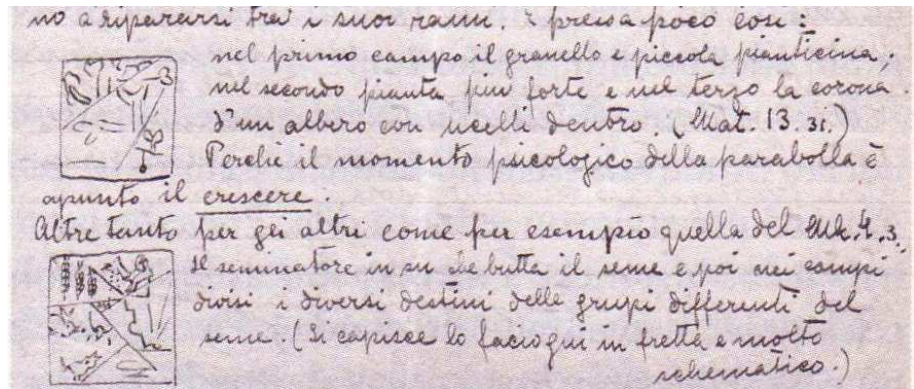 no a ripararsi tra' i suoi rami. È pressa poco così:
nel primo campo il granello e piccola pianticina,
nel secondo pianta più forte e nel terzo la corona
d'un albero con ucelli dentro. (Mat. 13. 31.)
Perchè il momento psicologico della parabolla è
apunto il crescere.
Altre tanto per gli altri come per esempio quella del Mk. 4. 3.
Il seminatore in su che butta il seme e poi nei campi
divisi i diversi destini delle grupi differenti del
seme. (Si capisce lo facio qui in fretta e molto
schematico.)